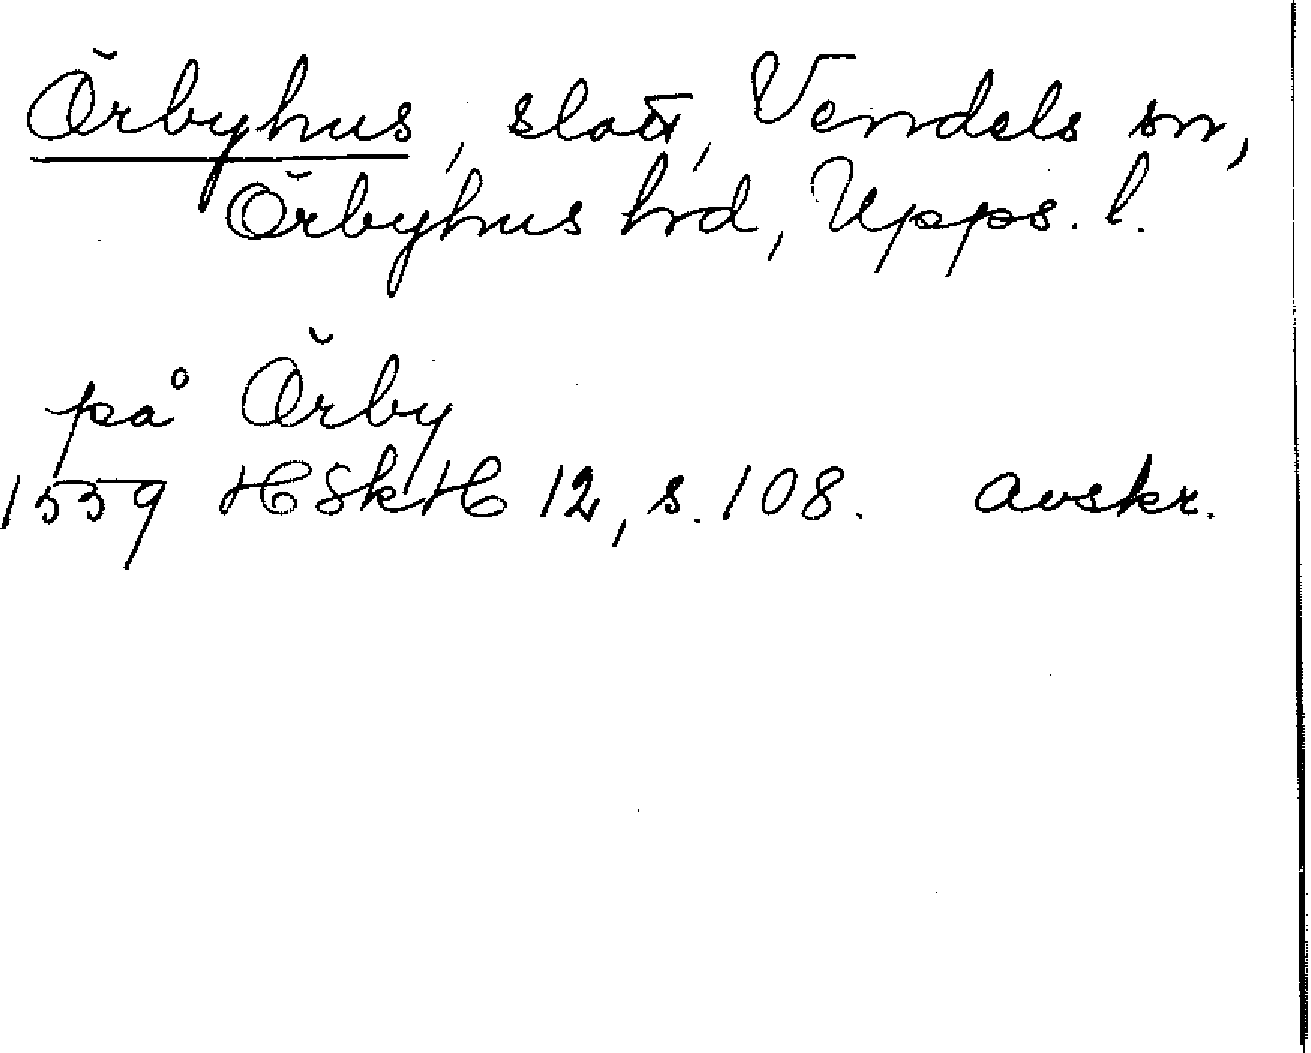 Örbyhus, slott, Vendels sn,
Örbyhus hd, Upps. l.
på Örby
1559 HSkH 12, s. 108. avskr.